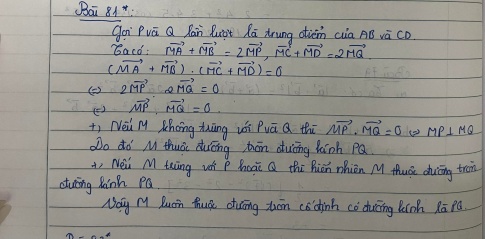 Bài 81*:
Gọi P và Q lần lượt là trung điểm của AB và CD.
Ta có: MA + MB = 2MP, MC + MD = 2MQ
(MA + MB) . (MC + MD) = 0
⇔ 2MP 2MQ = 0
⇔ MP MQ = 0
+, Nếu M không trùng với P và Q thì MP . MQ = 0 ⇔ MP ⊥ MQ
Do đó M thuộc đường tròn đường kính PQ
+, Nếu M trùng với P hoặc Q thì hiển nhiên M thuộc đường tròn
đường kính PQ.
Vậy M luôn thuộc đường tròn cố định có đường kính là PQ.